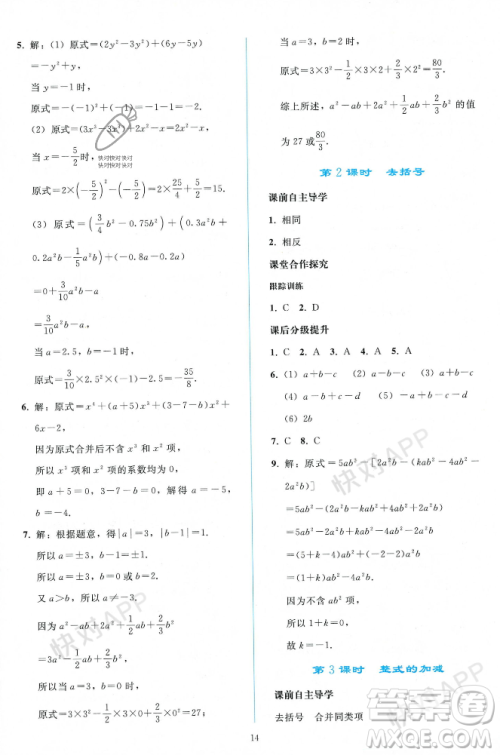 5. 解：(1) 原式=(2y²-3y²)+(6y-5y)
=-y²+y.
当 y=-1时，
原式=-(-1)²+(-1)=-2.
(2) 原式=(3x³-3x³)+2x²=2x²,
当 x=-5/2时，
快对快对快对
快对快对快对
原式=2×(-5/2)²-(-5/2)=2×25/4+5/2=15.
(3) 原式=(3/4b²-0.75b²)+(0.3a²b+
0.2a²b-1/5a²b)-a
=0+3/10a²b-a
=3/10a²b-a,
当 a=2.5，b=-1时，
原式=3/10×2.5²×(-1)-2.5=-35/8.
6. 解：原式=x⁴+(a+5)x³+(3-7-b)x²+
6x-2,
因为原式合并后不含 x³ 和 x² 项，
所以 x³ 项和 x² 项的系数均为 0.
即 a+5=0，3-7-b=0,
解得 a=-5，b=-4.
7. 解：根据题意，得|a|=3，|b-1|=1.
所以 a=±3，b-1=±1.
又 a>b，所以 a≠-3.
因为 a²-ab+2a²+1/3ab
=3a²-2/3ab,
所以当 a=3，b=0时，
原式=3×3²-2/3×3×0=27；
当 a=3，b=2时，
原式=3×3²-2/3×3×2+2/3=80/3.
综上所述，a²-ab+2a²+1/3ab 的值
为 27 或80/3.
第 2 课时 去括号
课前自主导学
1. 相同
2. 相反
课堂合作探究
跟踪训练
1. C 2. D
课后分级提升
1. C 2. A 3. A 4. A 5. A
6. (1) a+b-c (2) a-b-c (3) a-b+c
(4) -a-b+c-d (5) -a-b+c
(6) 2b
7. C 8. C
9. 解：原式=5ab²-[2a²b-(kab²-4ab²+
2a²b)]
=5ab²-(2a²b-kab²+4ab²-2a²b)
=5ab²-2a²b+kab²-4ab²+2a²b
=(5+k-4)ab²+(2-2)a²b
=(1+k)ab².
因为不含 ab² 项，
所以 1+k=0.
故 k=-1.
第 3 课时 整式的加减
课前自主导学
去括号 合并同类项
14
快对APP
快对APP
快对APP